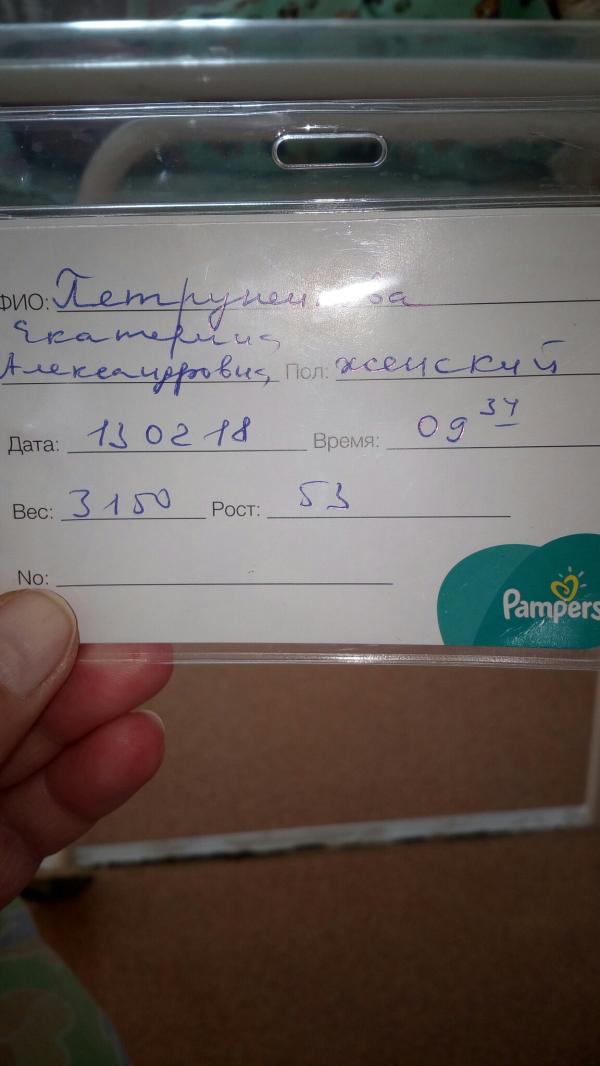 ФИО:
Екатерина
Александровна Пол: женский
Дата: 13 02 18 Время: 09 34
Вес: 3150 Рост: 53
No:
Pampers